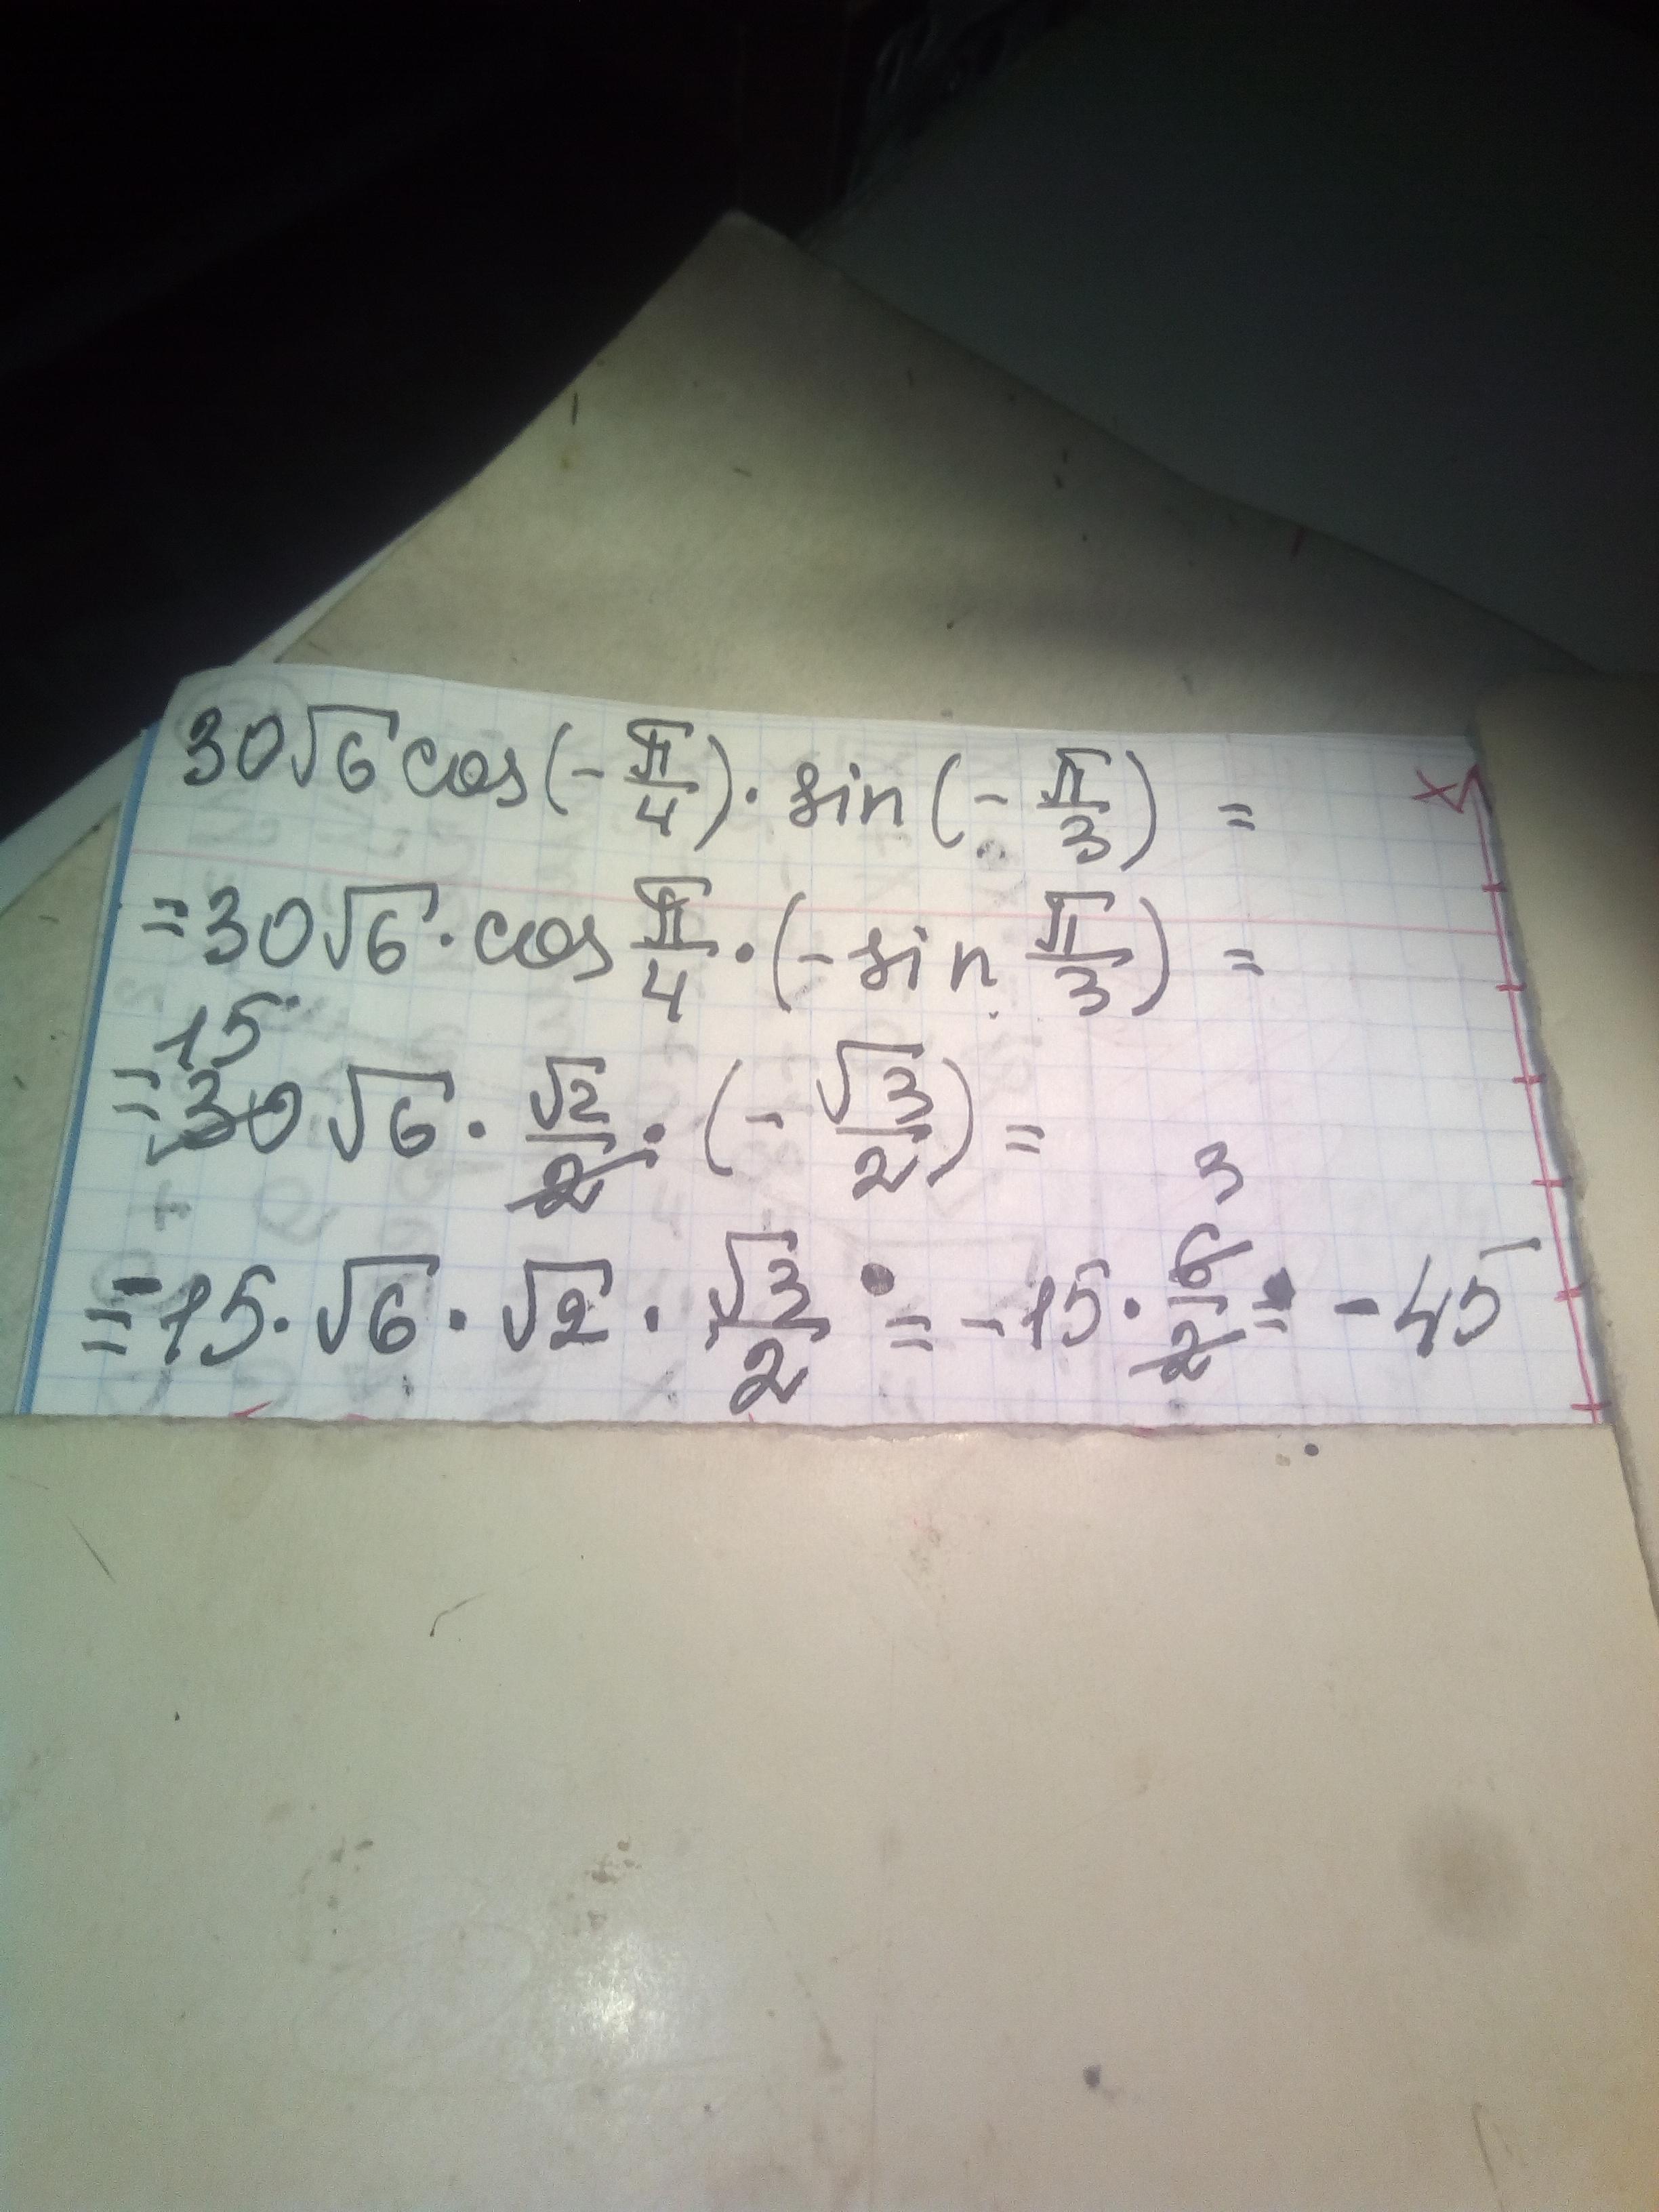 30√6 cos(-π/4)·sin(-π/3) =
=30√6·cos π/4·(-sin π/3) =
15
=30√6·√2/2·(-√3/2)=
3
=-15·√6·√2·√3/2 = -15·6/2 = -45
x